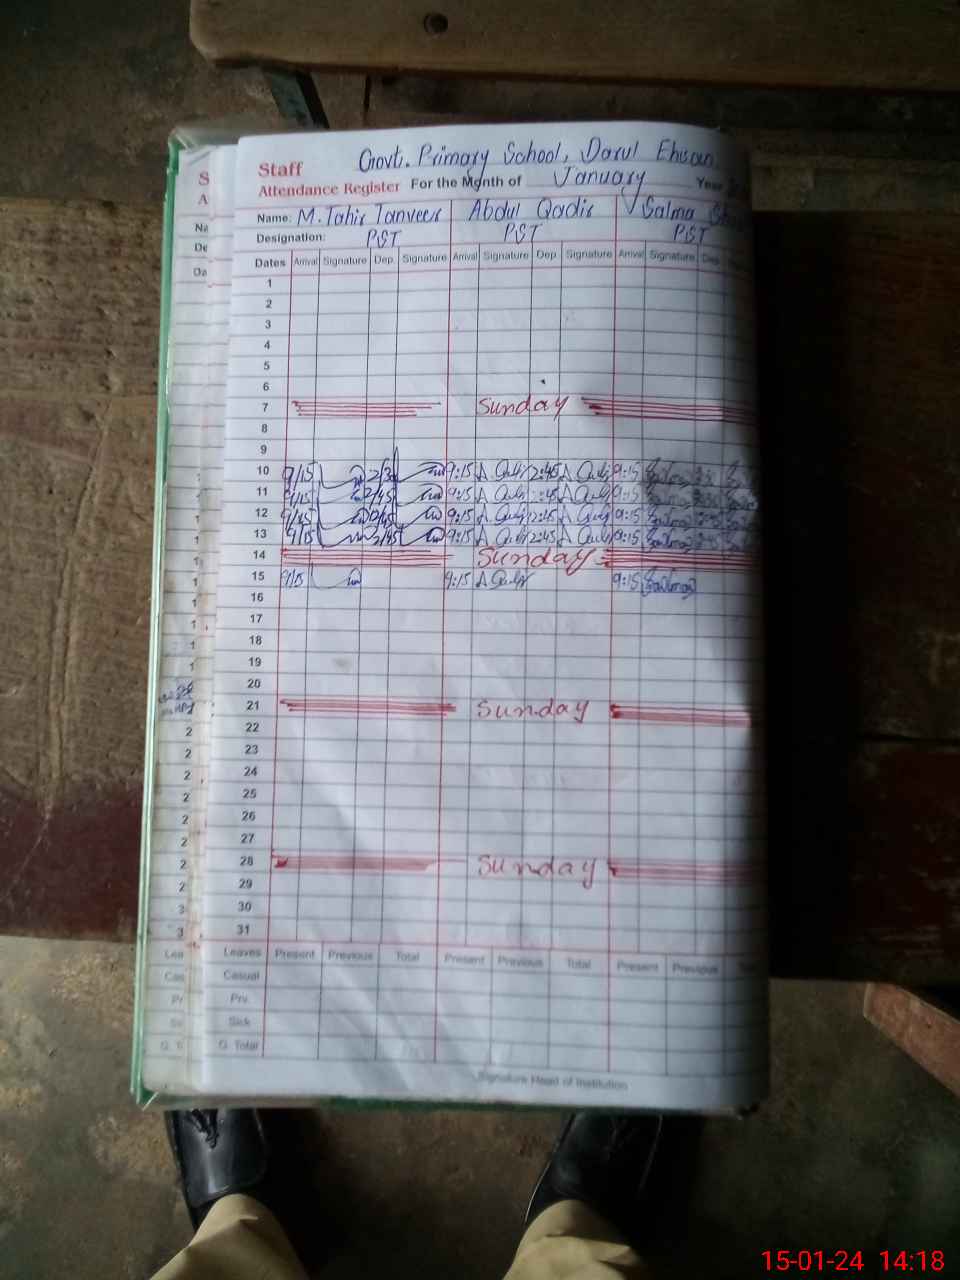 Govt. Primary School, Darul Ehsan
Staff
Attendance Register For the Month of January Year
Name: M. Tahir Tanveer Abdul Qadir Salma
Designation: PST PST PST
Dates Arrival Signature Dep. Signature Arrival Signature Dep. Signature Arrival Signature Dep.
1
2
3
4
5
6
7 Sunday
8
9
10 9/15 2/30 9:15 A Qadir 2:45 A Qadir 9:15 Salma
11 9/15 2/45 9:15 A Qadir 2:45 A Qadir 9:15 Salma
12 9/15 12/45 9:15 A Qadir 12:45 A Qadir 9:15 Salma
13 9/15 2/45 9:15 A Qadir 2:45 A Qadir 9:15 Salma
14 Sunday
15 9/15 9:15 A Qadir 9:15 Salma
16
17
18
19
20
21 Sunday
22
23
24
25
26
27
28 Sunday
29
30
31
Leaves Present Previous Total Present Previous Total Present Previous
Casual
Prv.
Sick
G. Total
Signature Head of Institution
15-01-24 14:18